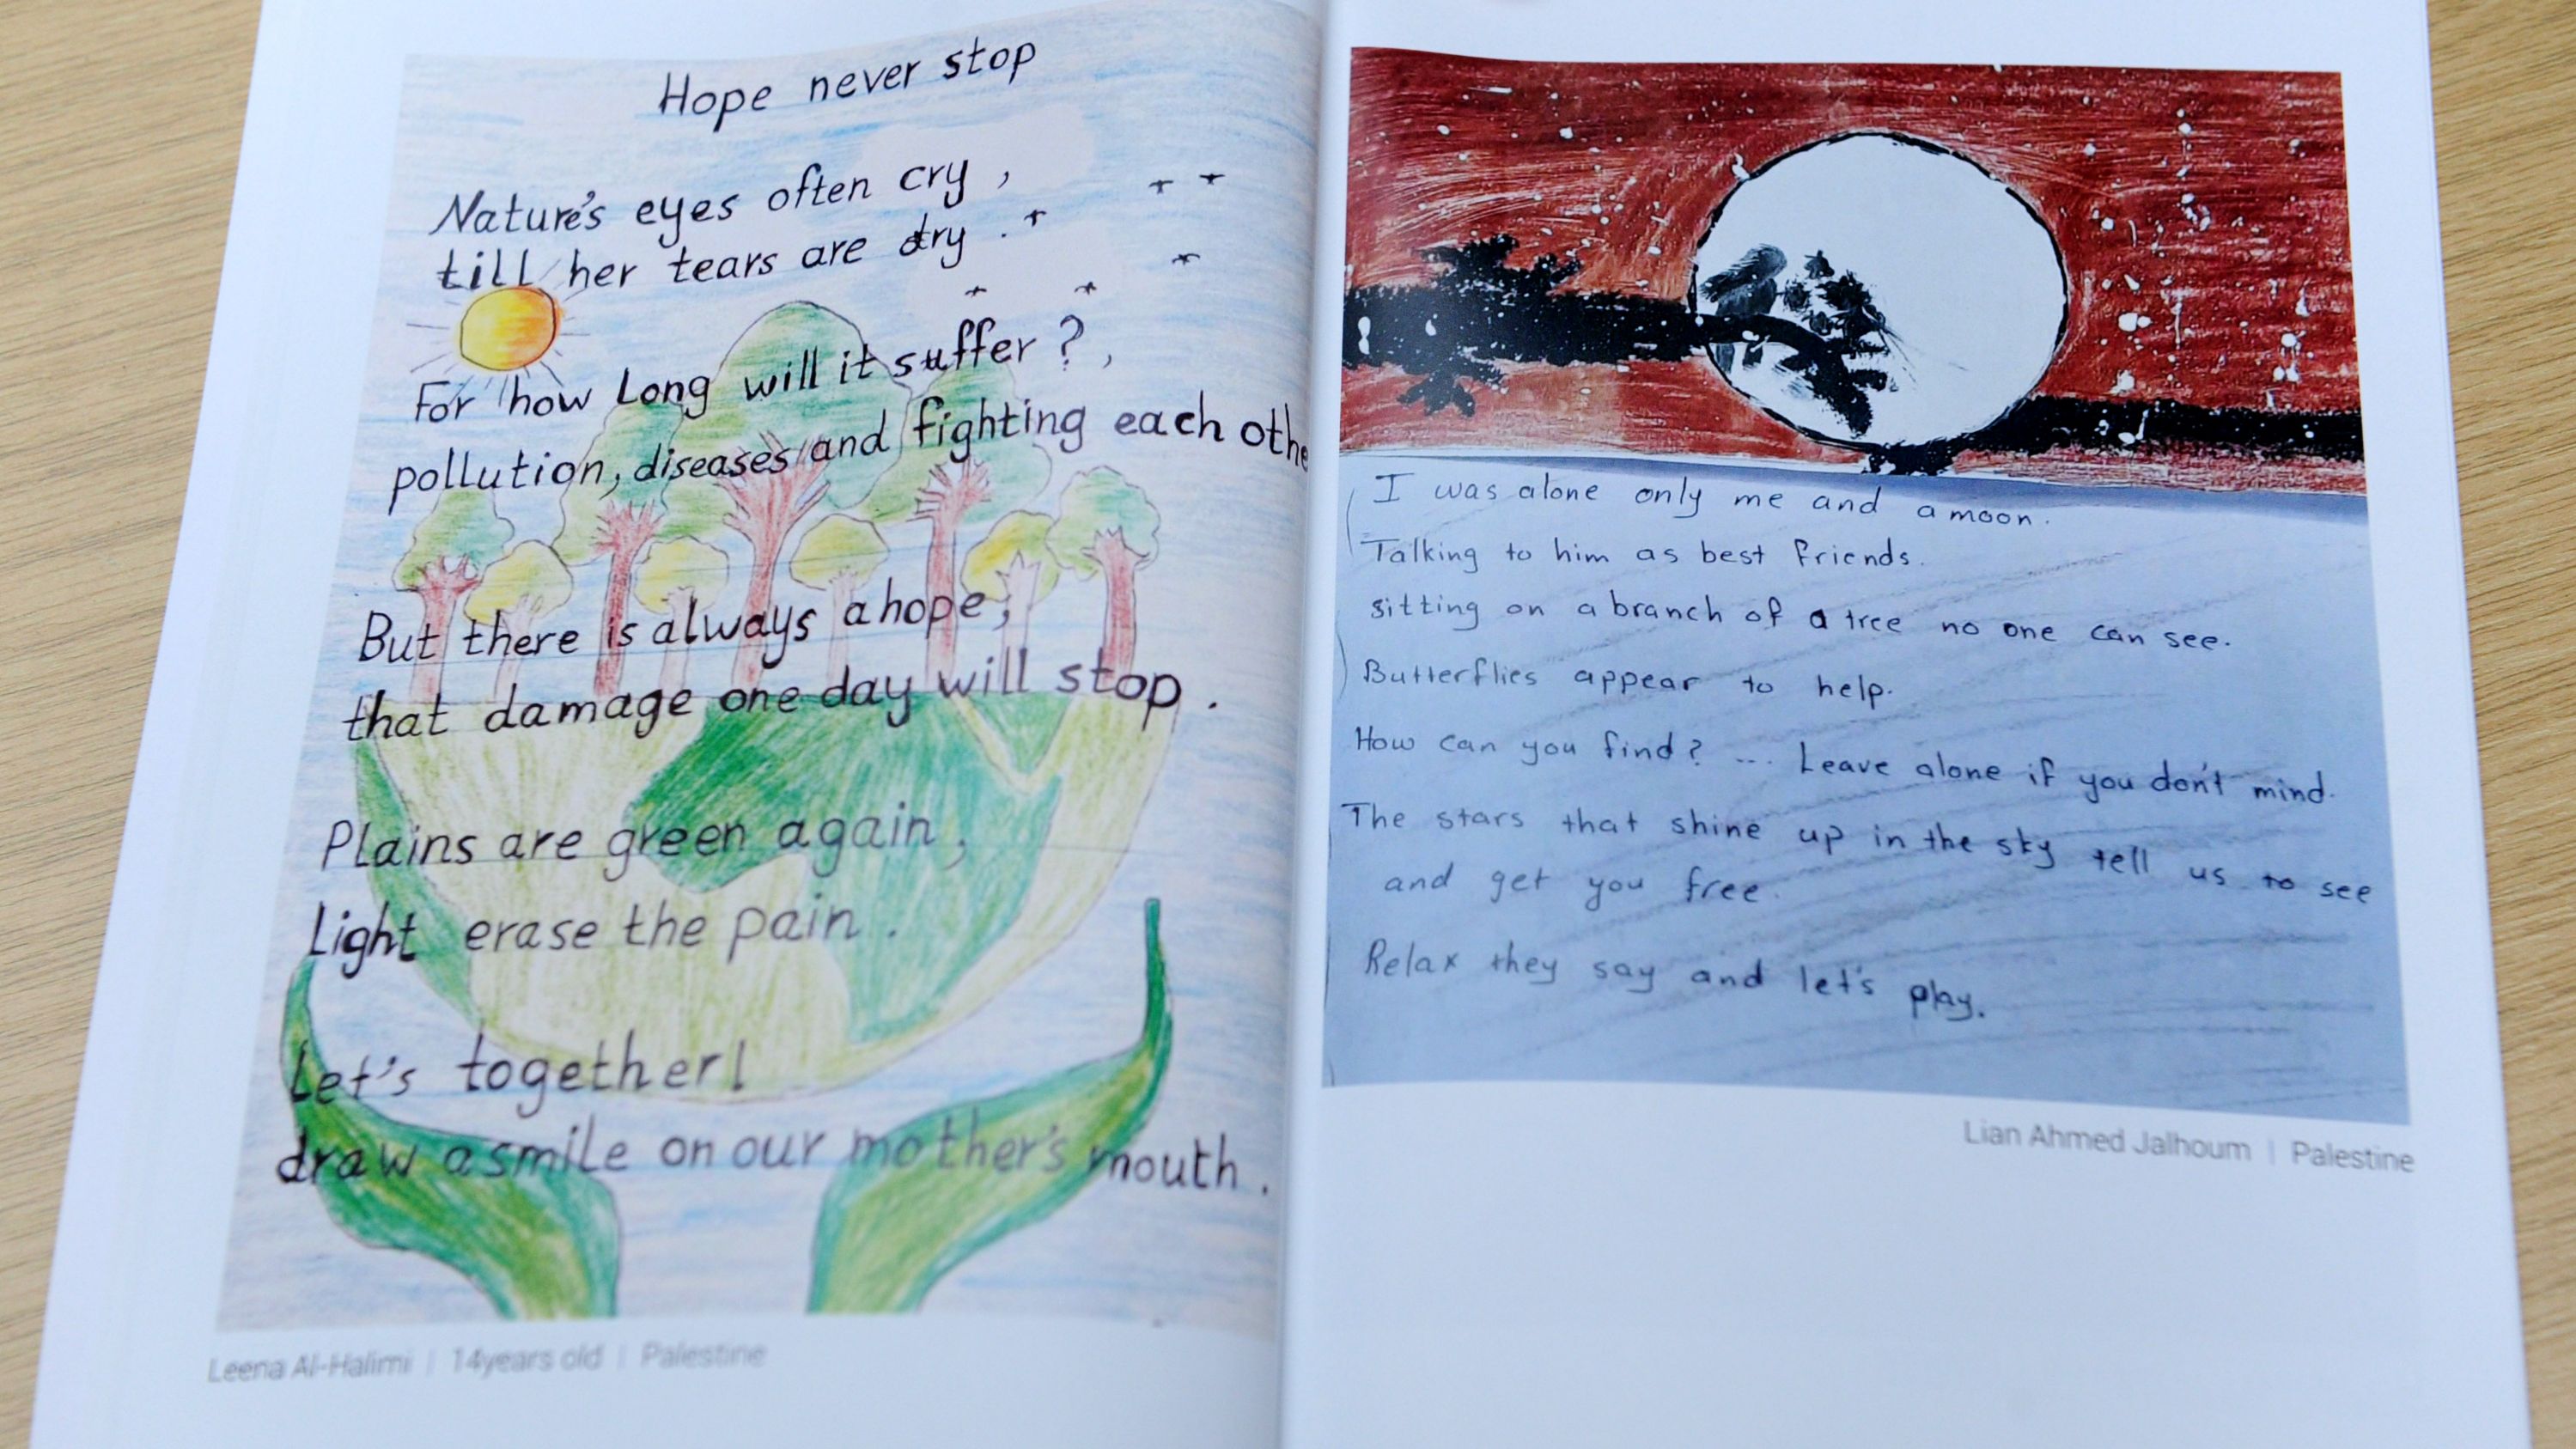 Hope never stop
Nature's eyes often cry,
till her tears are dry.
For how Long will it suffer?,
pollution, diseases and fighting each othe
But there is always a hope,
that damage one day will stop.
Plains are green again,
Light erase the pain.
Let's together!
draw a smile on our mother's mouth.
Leena Al-Halimi | 14years old | Palestine
I was alone only me and a moon.
Talking to him as best friends.
sitting on a branch of a tree no one can see.
Butterflies appear to help.
How can you find? ... Leave alone if you don't mind.
The stars that shine up in the sky tell us to see
and get you free.
Relax they say and let's play.
Lian Ahmed Jalhoum | Palestine